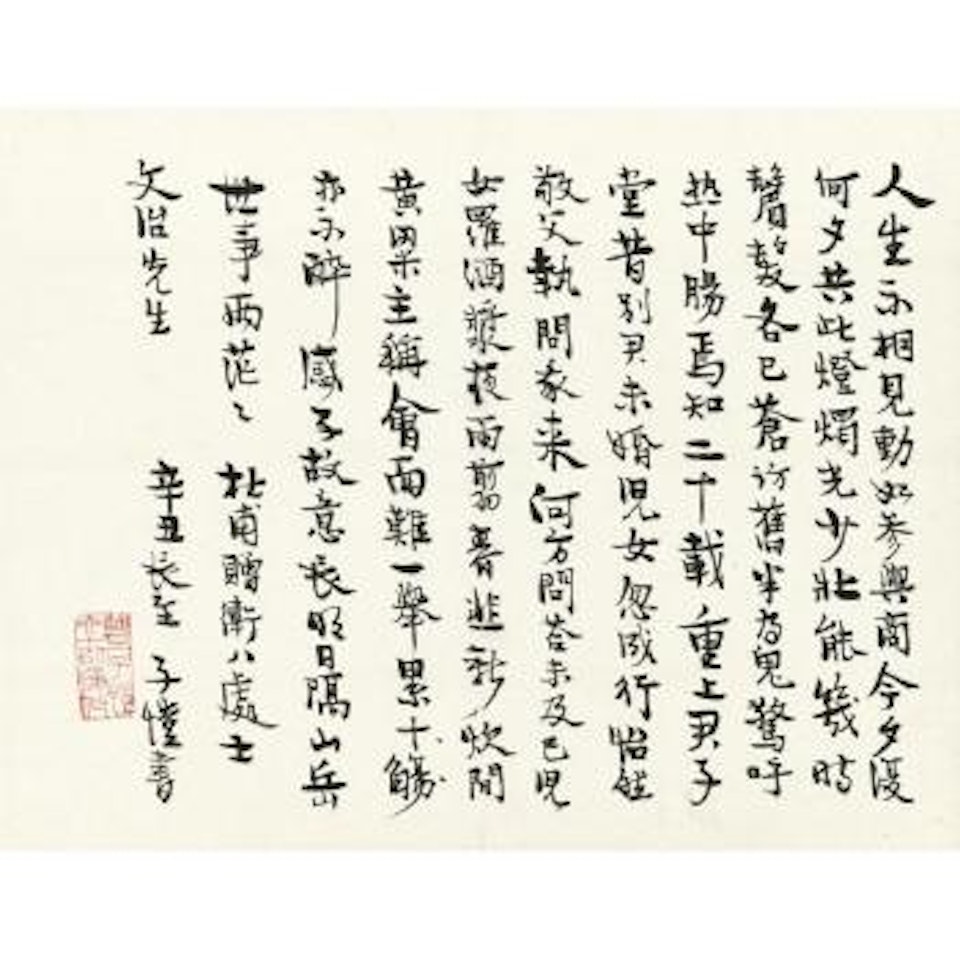 人生不相見動如参與商今夕復
何夕共此燈燭光少壯能幾時
鬢髮各已蒼訪舊半為鬼驚呼
热中腸焉知二十載重上君子
堂昔别君未婚児女忽成行怡然
敬父執問我来何方問答未及已児
女羅酒漿夜雨剪春韭新炊間
黄粱主稱會面難一舉累十觴
亦不醉感子故意長明日隔山岳
世事兩茫〻 杜甫贈衛八處士
文治先生 辛丑長至 子愷書